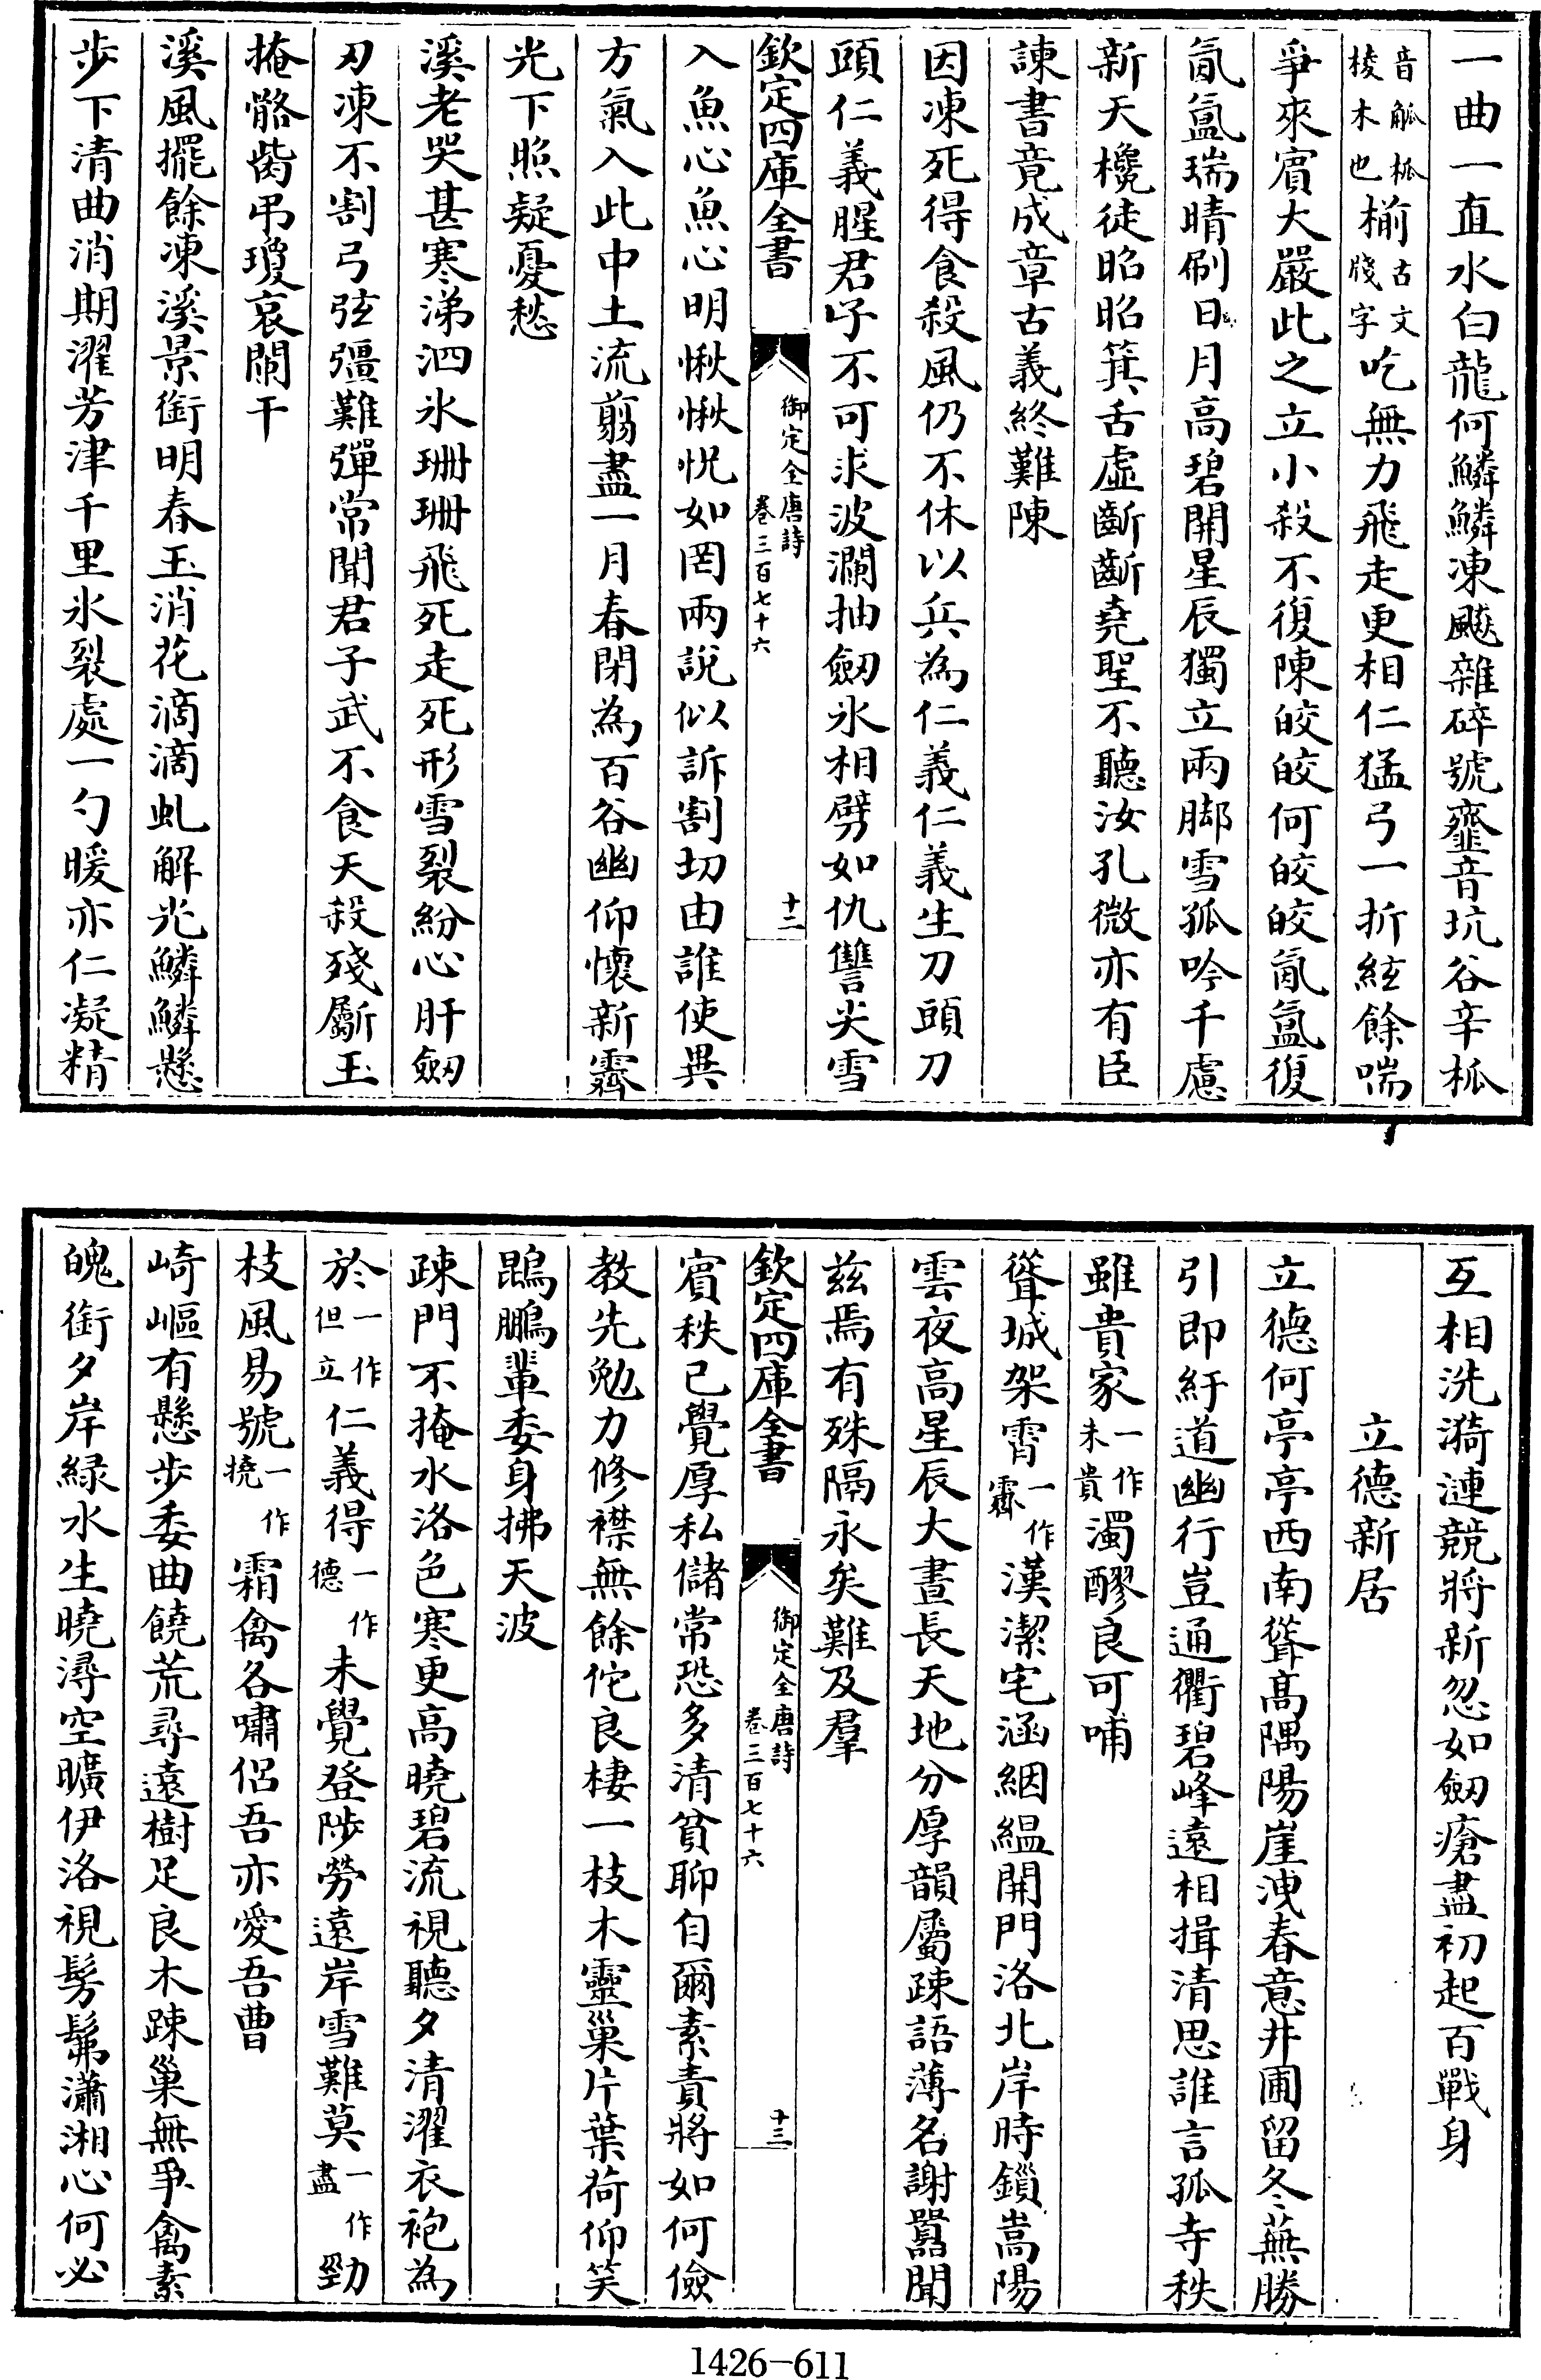 一曲一直水白龍何鱗鱗凍飈雜碎號韲音坑谷辛柧
音觚柧
棱木也
榆
古文
牋字
吃無力飛走更相仁猛弓一折絃餘喘
爭來賔大嚴此之立小殺不復陳皎皎何皎皎氤氳復
氤氳瑞晴刷日月高碧開星辰獨立兩脚雪孤吟千慮
新天欃徒昭昭箕舌虛齗齗堯聖不聽汝孔微亦有臣
諫書竟成章古義終難陳
因凍死得食殺風仍不休以兵為仁義仁義生刀頭刀
頭仁義腥君子不可求波瀾抽劒氷相劈如仇讐尖雪
欽定四庫全書
御定全唐詩
卷三百七十六
十二
入魚心魚心明愀愀怳如罔兩說似訴割切由誰使異
方氣入此中土流翦盡一月春閉為百谷幽仰懷新霽
光下照疑憂愁
溪老哭甚寒涕泗氷珊珊飛死走死形雪裂紛心肝劒
刃凍不割弓弦彊難彈常聞君子武不食天殺殘斸玉
掩骼胔弔瓊哀闌干
溪風擺餘凍溪景銜明春玉消花滴滴虬解光鱗鱗懸
步下清曲消期濯芳津千里氷裂處一勺暖亦仁凝精
互相洗漪漣競將新忽如劒瘡盡初起百戰身
立德新居
立德何亭亭西南聳高隅陽崖洩春意井圃留冬蕪勝
引即紆道幽行豈通衢碧峰遠相揖清思誰言孤寺秩
雖貴家
一作
未貴
濁醪良可哺
聳城架霄
一作
霽
漢潔宅涵絪縕開門洛北岸時鎖嵩陽
雲夜高星辰大晝長天地分厚韻屬疎語薄名謝囂聞
兹焉有殊隔永矣難及羣
欽定四庫全書
御定全唐詩
卷三百七十六
十三
賔秩已覺厚私儲常恐多清貧聊自爾素責將如何儉
教先勉力修襟無餘佗良棲一枝木靈巢片葉荷仰笑
鵾鵬輩委身拂天波
疎門不掩水洛色寒更高曉碧流視聽夕清濯衣袍為
於
一作
但立
仁義得
一作
德
未覺登陟勞遠岸雪難莫
一作
盡
勁
枝風易號
一作
撓
霜禽各嘯侶吾亦愛吾曹
崎嶇有懸步委曲饒荒尋遠樹足良木疎巢無爭禽素
魄銜夕岸緑水生曉潯空曠伊洛視髣髴瀟湘心何必
1426-611